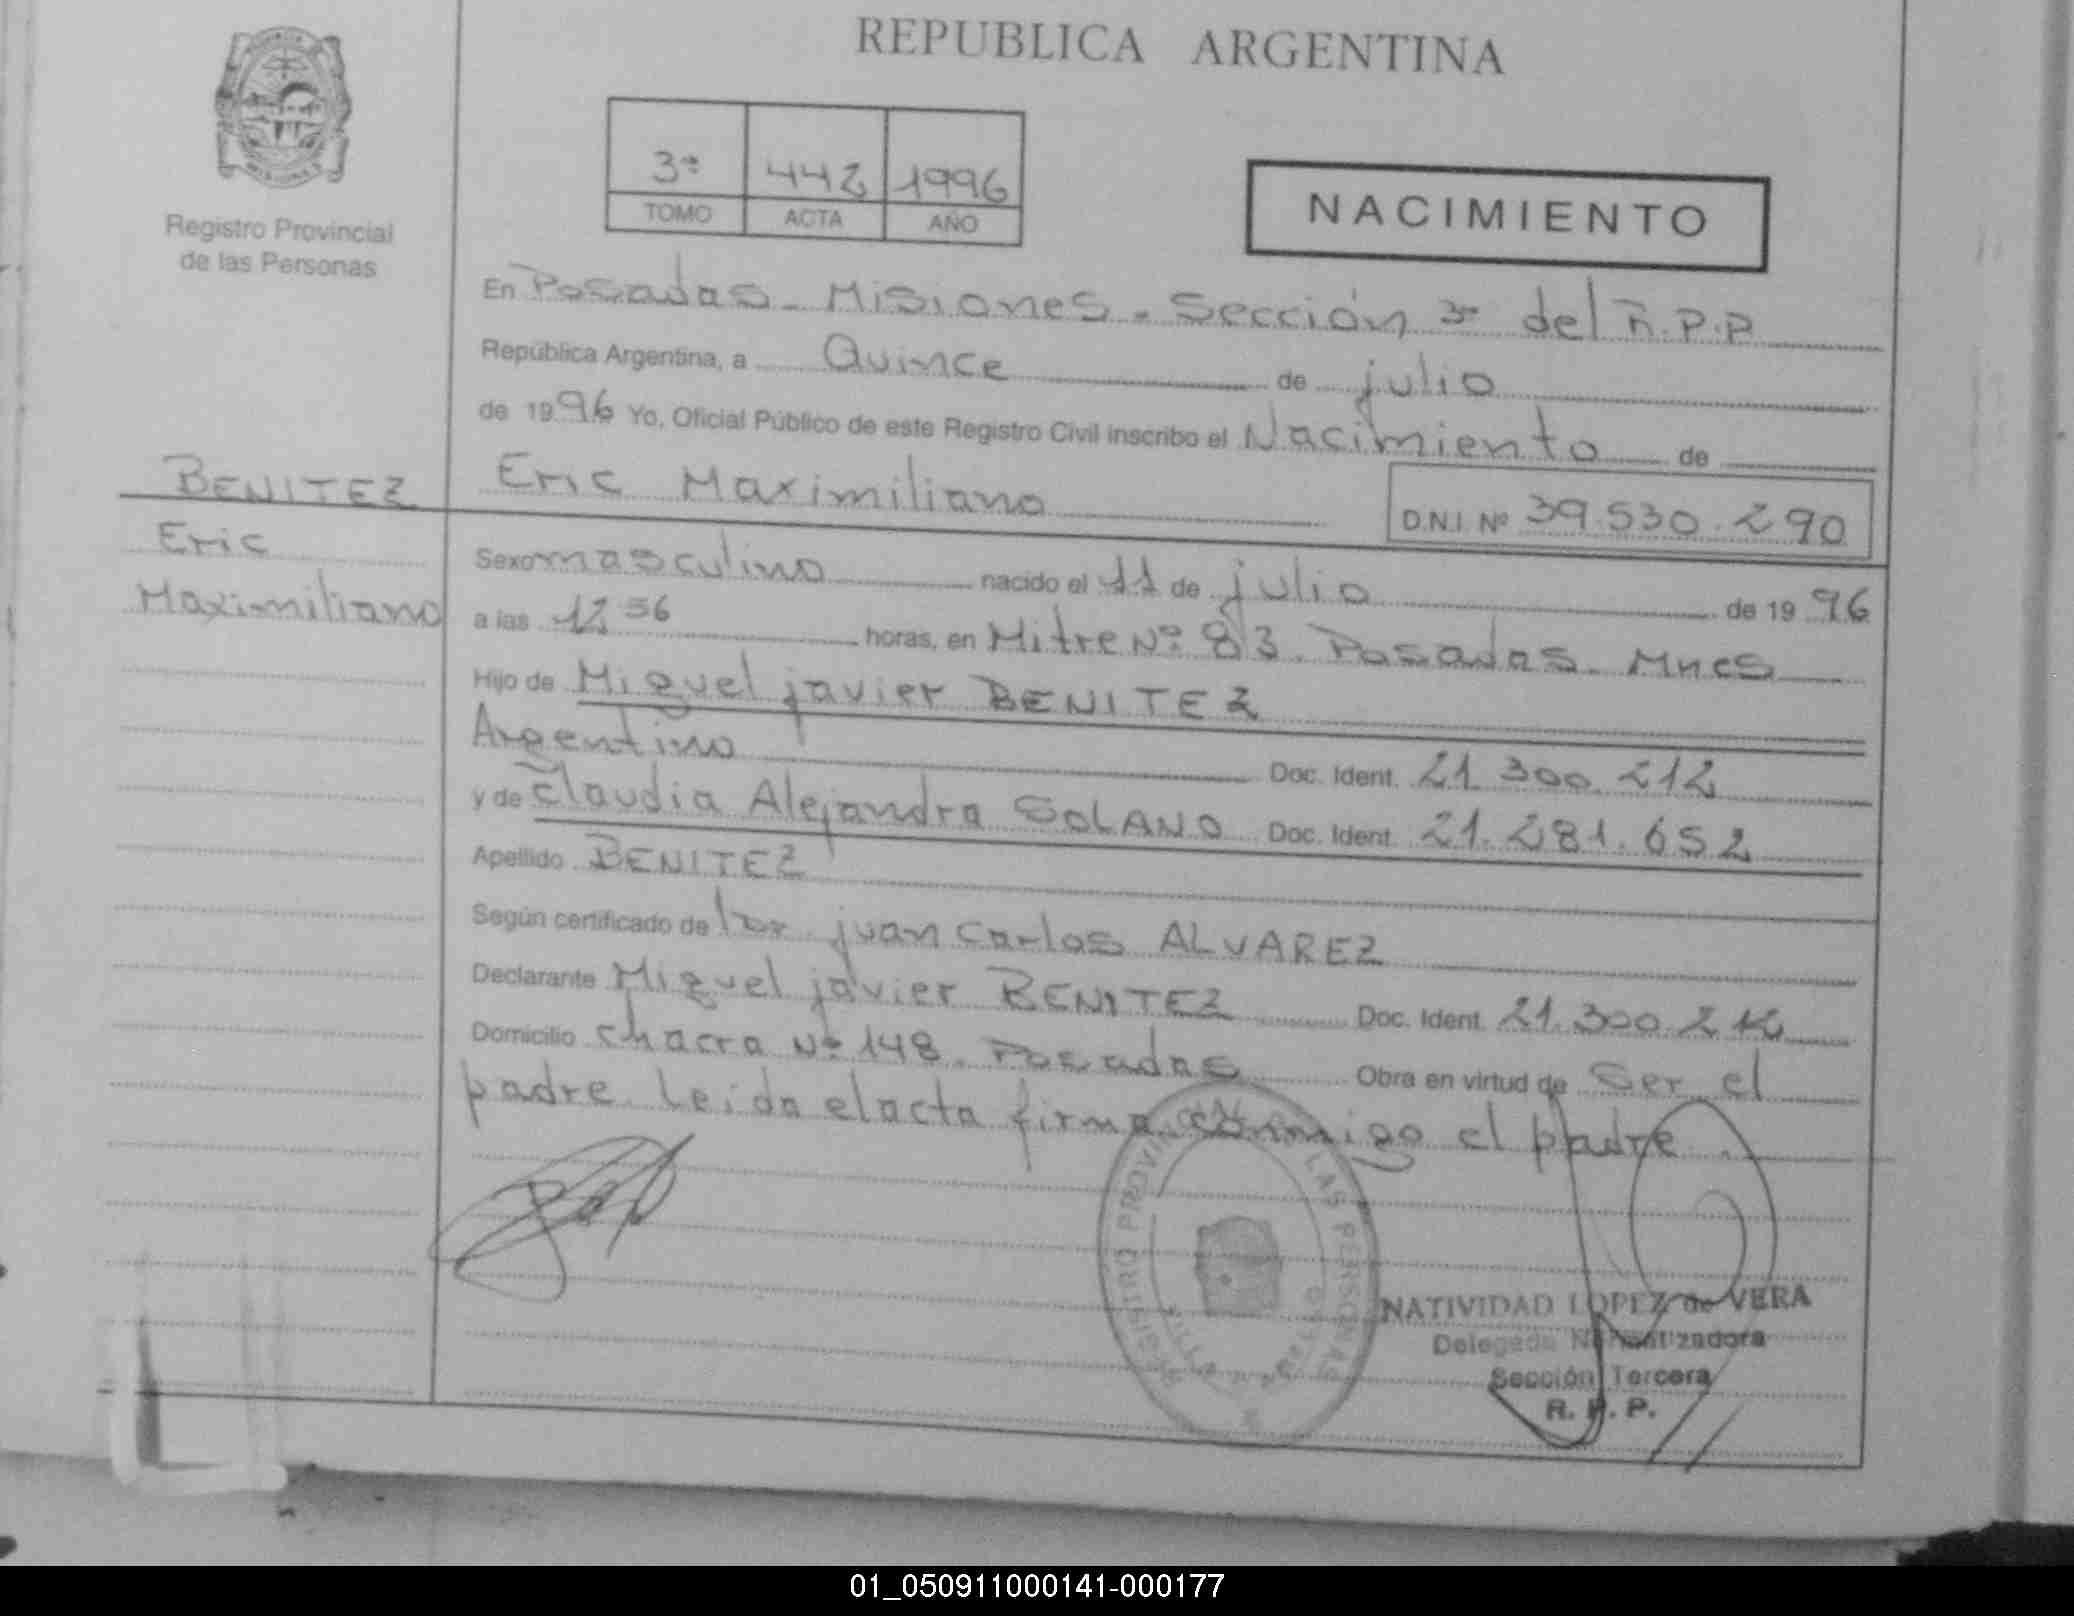 REPUBLICA ARGENTINA
Registro Provincial
de las Personas
3ª 442 1996
TOMO ACTA AÑO
NACIMIENTO
En Posadas - Misiones - Sección 3ª del R.P.P.
República Argentina, a Quince de julio
de 1996 Yo, Oficial Público de este Registro Civil inscribo el Nacimiento de
BENITEZ
Eric
Maximiliano
Eric Maximiliano D.N.I. Nº 39.530.290
Sexo masculino nacido el 11 de julio de 1996
a las 12 56 horas, en Mitre Nº 83. Posadas. Mnes
Hijo de Miguel javier BENITEZ
Argentino Doc. Ident. 21.300.212
y de Claudia Alejandra SOLANO Doc. Ident. 21.281.652
Apellido BENITEZ
Según certificado de juan Carlos ALVAREZ
Declarante Miguel javier BENITEZ Doc. Ident. 21.300.212
Domicilio chacra Nº 148. Posadas Obra en virtud de Ser el
padre. Leida el acta firma conmigo el padre.
REGISTRO PROVINCIAL DE LAS PERSONAS
NATIVIDAD LOPEZ de VERA
Delegada
Sección Tercera
R. P. P.
01_050911000141-000177